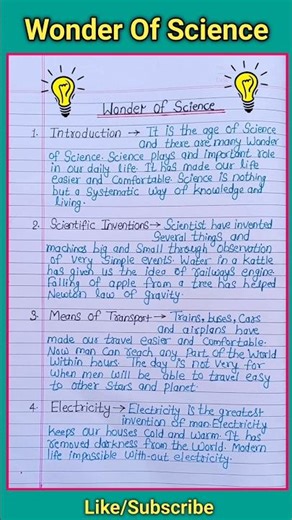 Wonder Of Science
Wonder Of Science
1. Introduction → It is the age of Science
and there are many wonder
of Science. Science plays and important role
in our daily life. It has made our life
easier and Comfortable. Science is nothing
but a Systematic way of knowledge and
living.
2. Scientific Inventions → Scientist have invented
Several things and
machines big and Small through observation
of very Simple events. Water in a kattle
has given us the idea of railways engine.
Falling of apple from a tree has helped
Newton law of gravity.
3. Means of Transport → Trains, buses, Cars
and airplans have
made our travel easier and Comfortable.
Now man Can reach any Part of the World
Within hours. The day is not very for
when men will be able to travel easy
to other Stars and planet.
4. Electricity → Electricity Is the greatest
invention of man. Electricity
Keeps our houses Cold and Warm. It has
removed darkness from the World. Modern
life impossible With-out electricity.
Like/Subscribe